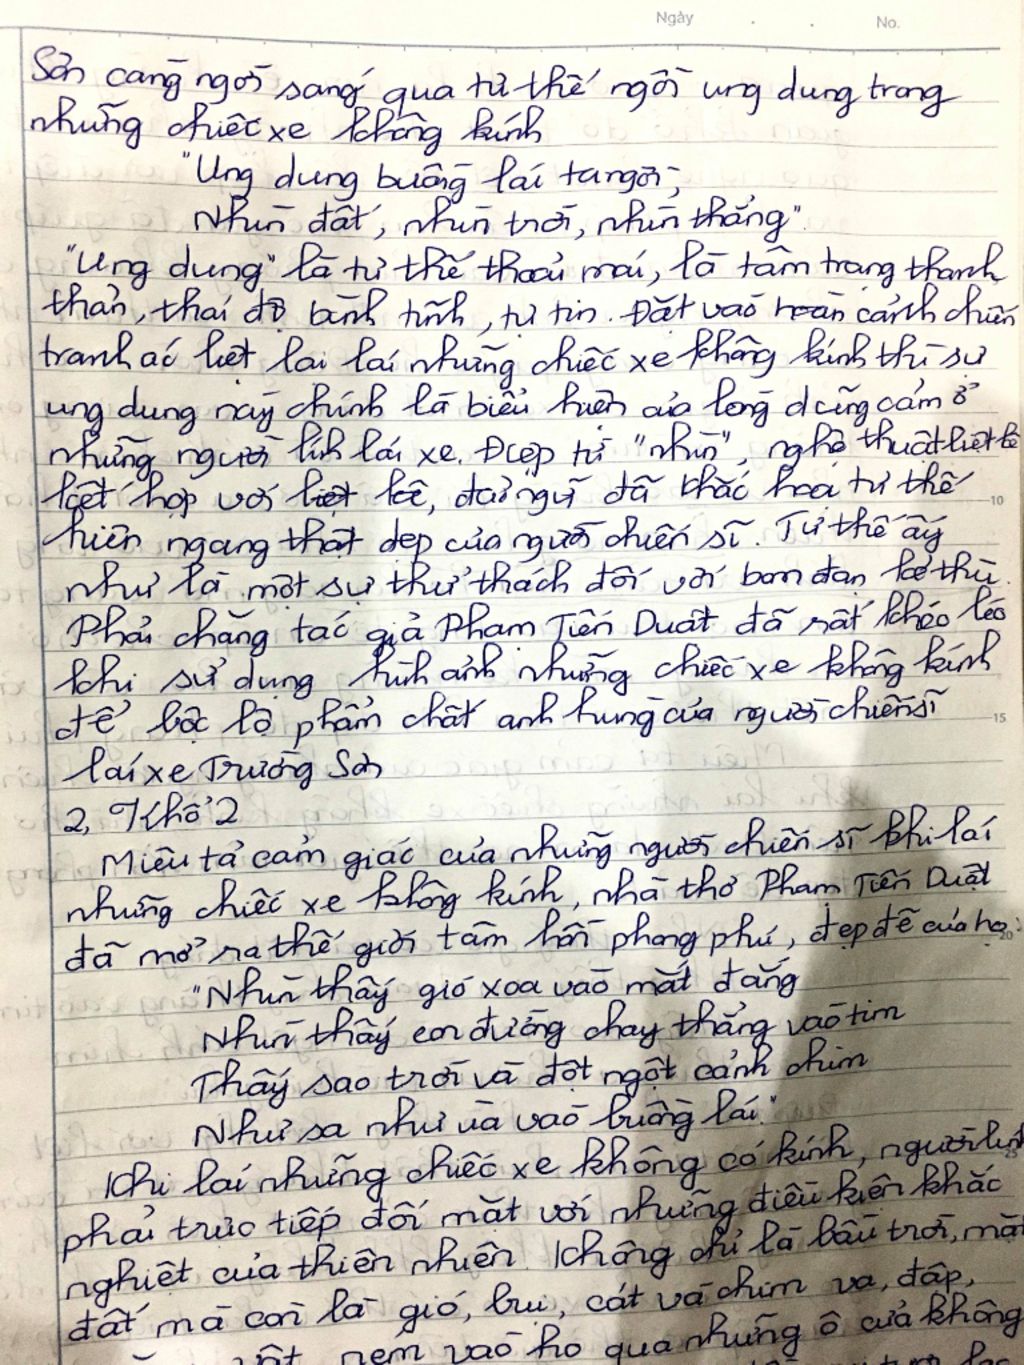 Ngày . . No.
Sơn càng ngời sáng qua tư thế ngồi ung dung trong
những chiếc xe không kính
"Ung dung buồng lái ta ngồi,
Nhìn đất, nhìn trời, nhìn thẳng".
"Ung dung" là tư thế thoải mái, là tâm trạng thanh
thản, thái độ bình tĩnh, tự tin. Đặt vào hoàn cảnh chiến
tranh ác liệt lai lái những chiếc xe không kính thì sự
ung dung này chính là biểu hiện của lòng dũng cảm ở
những người lính lái xe. Điệp từ "nhìn", nghệ thuật liệt kê
kết hợp với liệt kê, đã khắc hoạ tư thế
hiên ngang thật đẹp của người chiến sĩ. Tư thế ấy
như là một sự thử thách đối với bom đạn kẻ thù.
Phải chăng tác giả Phạm Tiến Duật đã rất khéo léo
10
khi sử dụng hình ảnh những chiếc xe không kính
để bộc lộ phẩm chất anh hùng của người chiến sĩ
15
lái xe Trường Sơn
2, Khổ 2
Miêu tả cảm giác của những người chiến sĩ khi lái
những chiếc xe không kính, nhà thơ Phạm Tiến Duật
đã mở ra thế giới tâm hồn phong phú, đẹp đẽ của họ:
20
"Nhìn thấy gió xoa vào mắt đắng
Nhìn thấy con đường chạy thẳng vào tim
Thấy sao trời và đột ngột cánh chim
Như sa như ùa vào buồng lái."
Khi lái những chiếc xe không có kính, người lính
25
phải trực tiếp đối mặt với những điều kiện khắc
nghiệt của thiên nhiên. Không chỉ là bầu trời, mặt
đất mà còn là gió, bụi, cát và chim va, đập,
ném vào họ qua những ô cửa không